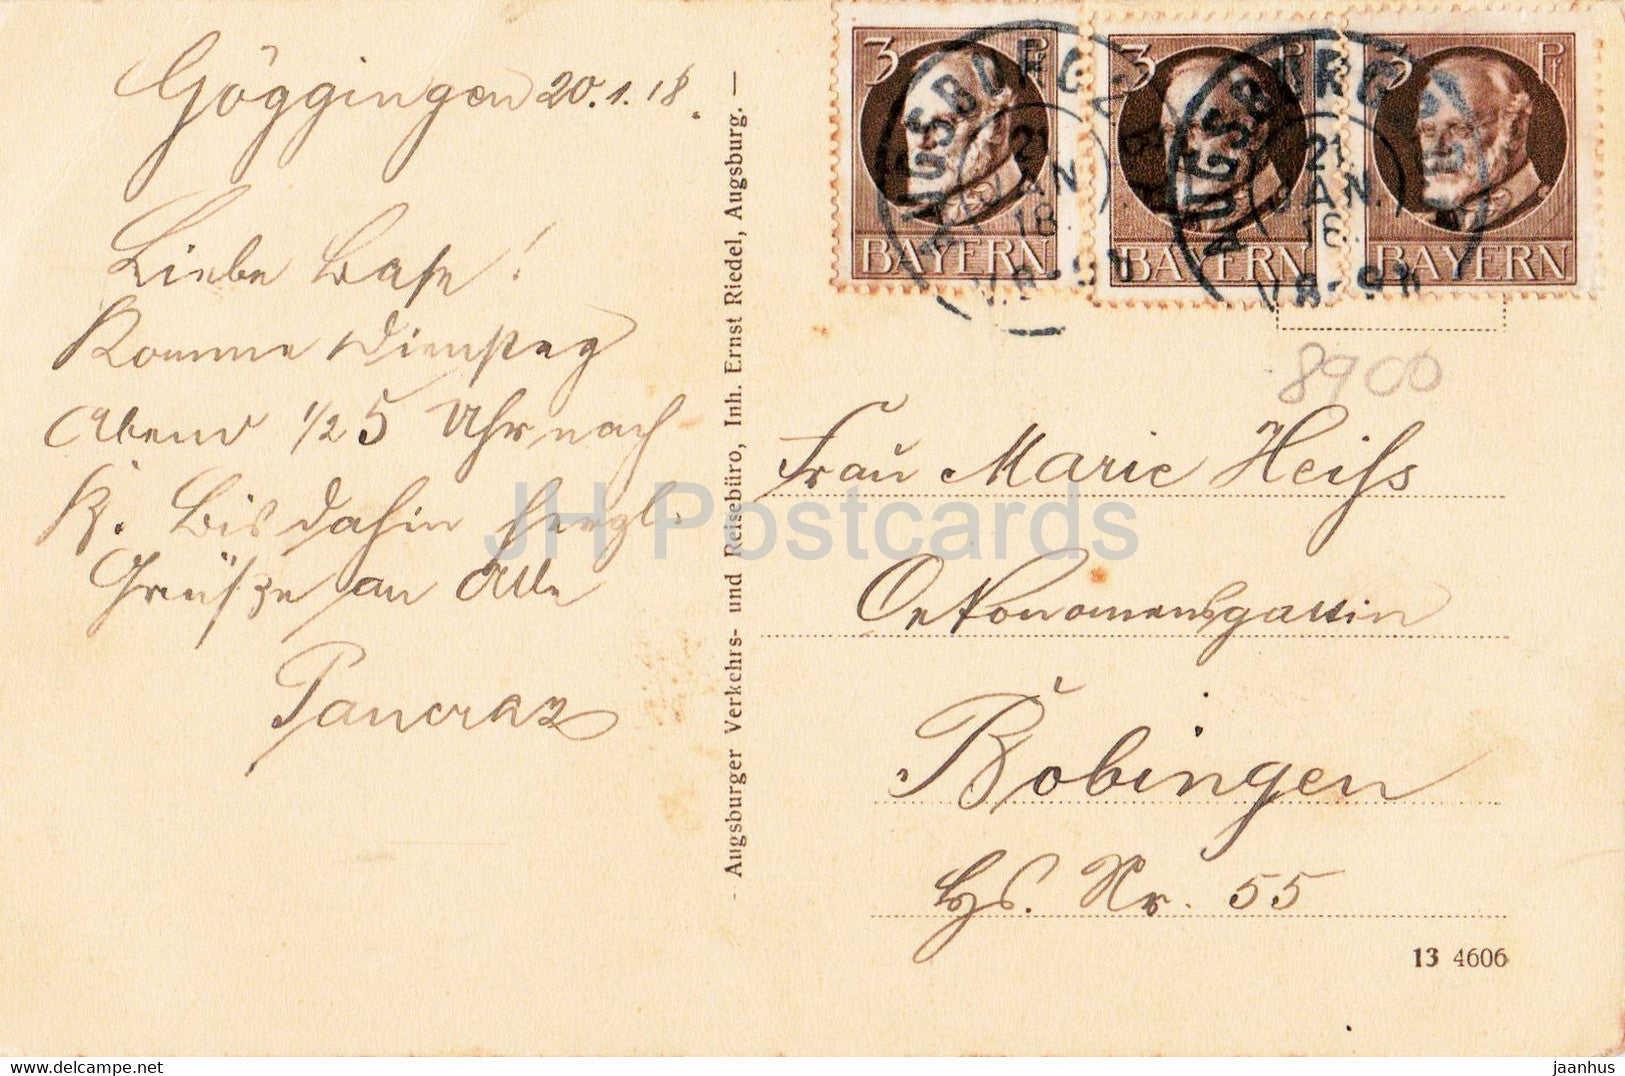 Göggingen 20.1.18.
Liebe Base!
Komme Dienstag
Abend 1/2 5 Uhr nach
B. Bis dahin herzl.
Grüsze an Alle
Pancraz
- Augsburger Verkehrs- und Reisebüro, Inh. Ernst Riedel, Augsburg. -
3 Pf
BAYERN
3 Pf
BAYERN
3 Pf
BAYERN
AUGSBURG
21
JAN
18
AUGSBURG
21.
JAN.
18
V.8-9V
8900
Frau Marie Heiss
Oekonomensgattin
Bobingen
Hs. Nr. 55
13 4606
JH Postcards
jaanhus
www.delcampe.net